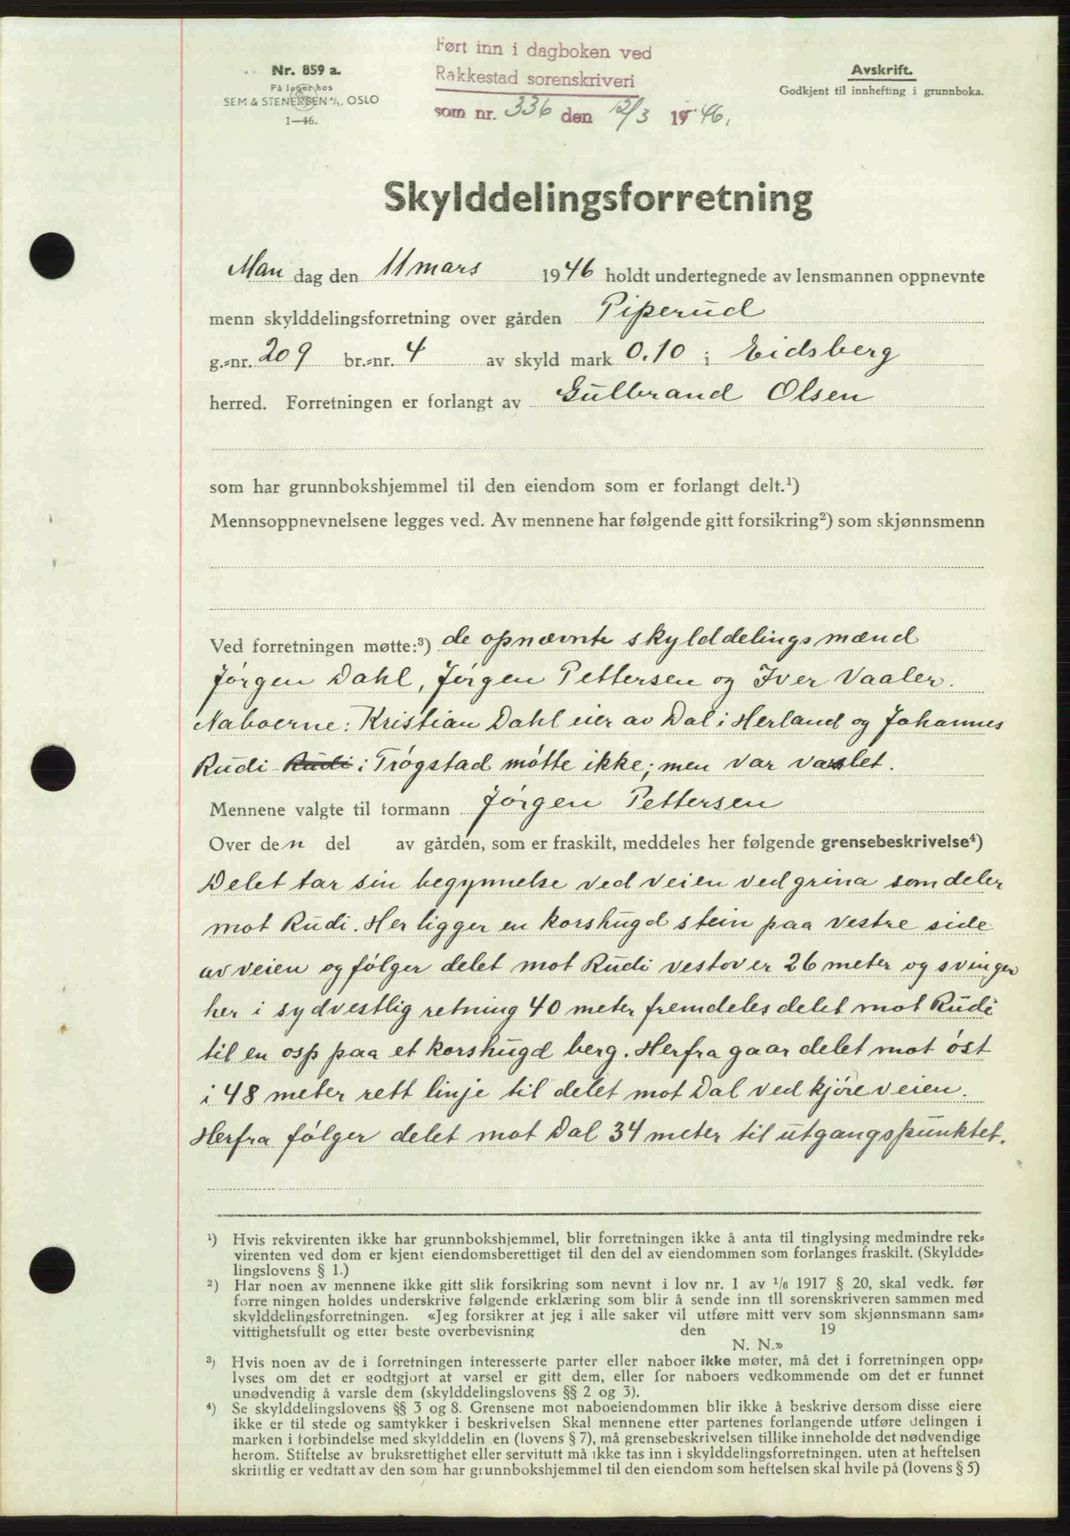 Nr. 859 a.
På lager hos
SEM & STENERSEN A/S, OSLO
1—46.
Ført inn i dagboken ved
Rakkestad sorenskriveri
som nr. 336 den 12/3 1946.
Avskrift.
Godkjent til innhefting i grunnboka.
Skylddelingsforretning
Man dag den 11 mars 1946 holdt undertegnede av lensmannen oppnevnte
menn skylddelingsforretning over gården Piperud
g.=nr. 209 br.=nr. 4 av skyld mark 0.10 i Eidsberg
herred. Forretningen er forlangt av Gulbrand Olsen
som har grunnbokshjemmel til den eiendom som er forlangt delt.¹)
Mennsoppnevnelsene legges ved. Av mennene har følgende gitt forsikring²) som skjønnsmenn
Ved forretningen møtte:³) de opnævnte skylddelingsmænd
Jørgen Dahl, Jørgen Pettersen og Iver Vaaler.
Naboerne: Kristian Dahl eier av Dal i Herland og Johannes
Rudi Rudi i Trøgstad møtte ikke; men var varslet.
Mennene valgte til formann Jørgen Pettersen
Over den del av gården, som er fraskilt, meddeles her følgende grensebeskrivelse⁴)
Delet tar sin begynnelse ved veien ved grina som deler
mot Rudi. Her ligger en korshugd stein paa vestre side
av veien og følger delet mot Rudi vestover 26 meter og svinger
her i sydvestlig retning 40 meter fremdeles delet mot Rudi
til en osp paa et korshugd berg. Herfra gaar delet mot øst
i 48 meter rett linje til delet mot Dal ved kjøreveien.
Herfra følger delet mot Dal 34 meter til utgangspunktet.
¹) Hvis rekvirenten ikke har grunnbokshjemmel, blir forretningen ikke å anta til tinglysing medmindre rek=
virenten ved dom er kjent eiendomsberettiget til den del av eiendommen som forlanges fraskilt. (Skyldde=
lingslovens § 1.)
²) Har noen av mennene ikke gitt slik forsikring som nevnt i lov nr. 1 av 1/6 1917 § 20, skal vedk. før
forretningen holdes underskrive følgende erklæring som blir å sende inn til sorenskriveren sammen med
skylddelingsforretningen. «Jeg forsikrer at jeg i alle saker vil utføre mitt verv som skjønnsmann sam=
vittighetsfullt og etter beste overbevisning den 19
N. N.»
³) Hvis noen av de i forretningen interesserte parter eller naboer ikke møter, må det i forretningen opp=
lyses om det er godtgjort at varsel er gitt dem, eller for naboers vedkommende om det er funnet
unødvendig å varsle dem (skylddelingslovens §§ 2 og 3).
⁴) Se skylddelingslovens §§ 3 og 8. Grensene mot naboeiendommen blir ikke å beskrive dersom disse eiere
ikke er til stede og samtykker i beskrivelsen Skal mennene etter partenes forlangende utføre delingen i
marken i forbindelse med skylddelin en (lovens § 7), må grensebeskrivelsen tillike inneholde det nødvendige
herom. Stiftelse av bruksrettighet eller servitutt må ikke tas inn i skylddelingsforretningen. uten at heftelsen
skriftlig er vedtatt av den som har grunnbokshjemmel til den eiendom som heftelsen skal hvile på (lovens § 5)